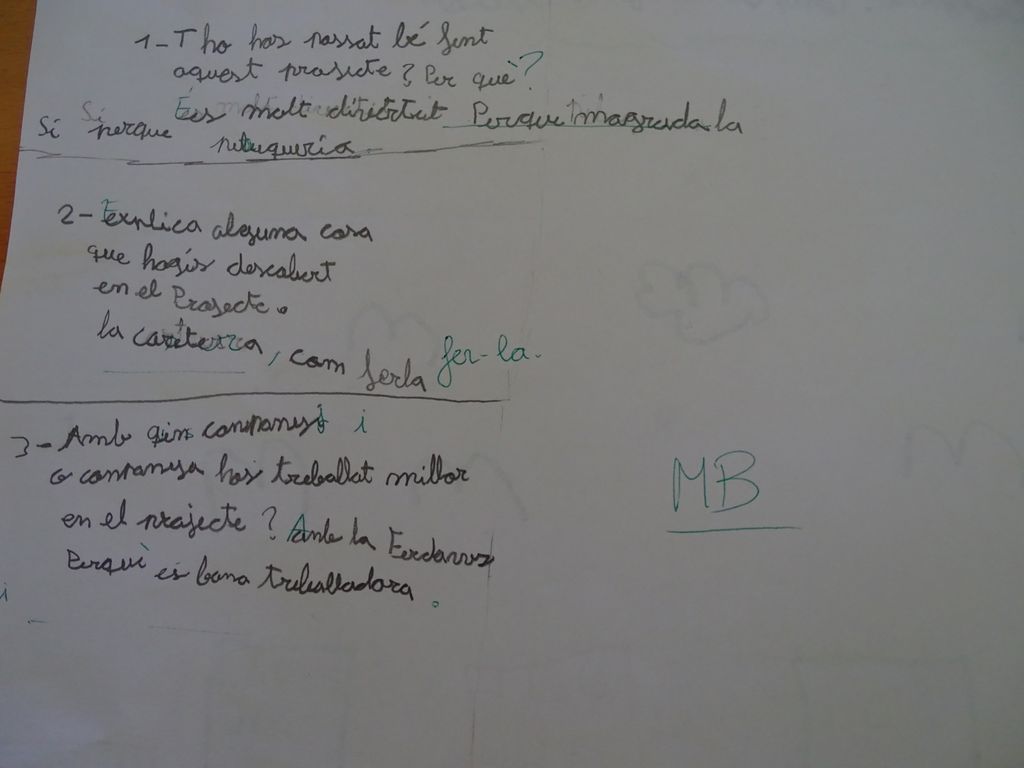 1-T ho has passat bé fent
aquest projecte? Per què?
És molt divertit Perque magrada la
Sí perque peluqueria
2- Explica alguna cosa
que hagis descobert
en el Projecte.
la careterra, com ferla fer-la.
3- Amb quin companys i
o companya has treballat millor
en el projecte? Amb la
Perquè és bona treballadora.
i
MB